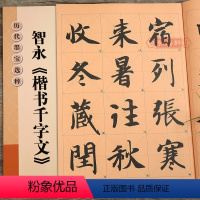 历代墨宝选粹
智永《楷书千字文》
宿列張寒
来暑往秋
收冬藏閏
粉象优品